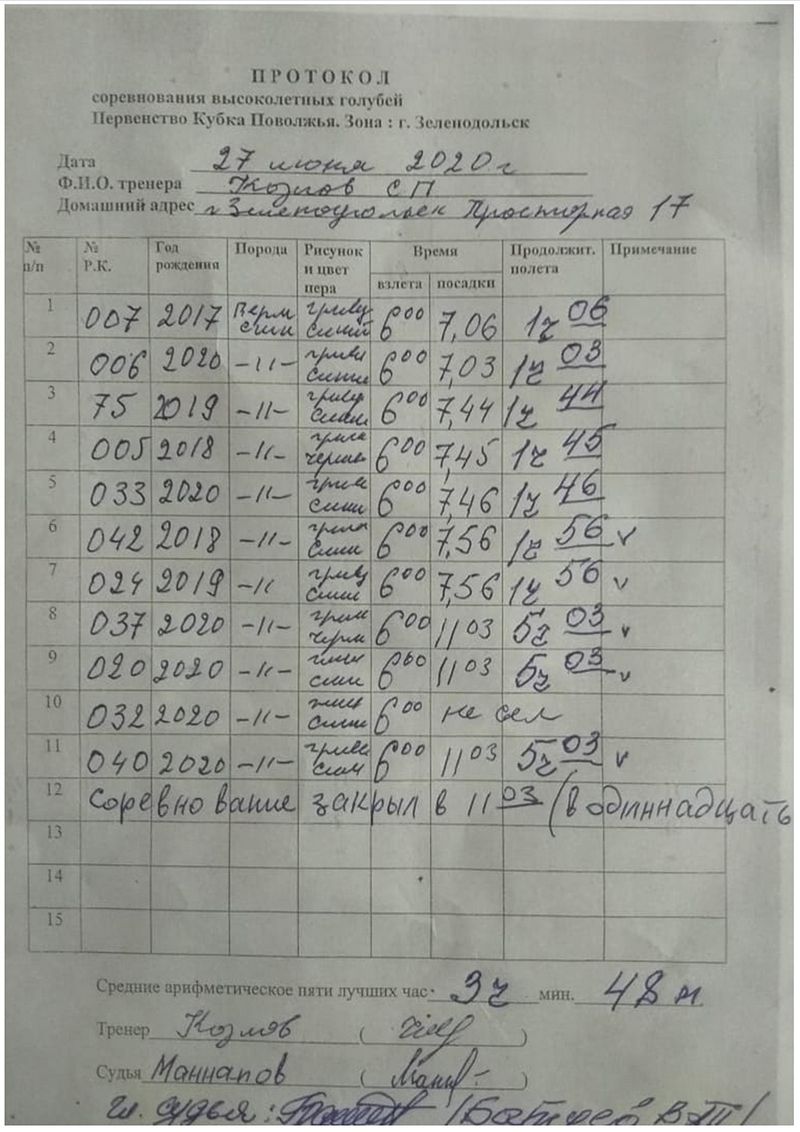 ПРОТОКОЛ
соревнования высоколетных голубей
Первенство Кубка Поволжья. Зона : г. Зеленодольск
Дата 27 июня 2020 г
Ф.И.О. тренера Козлов СП
Домашний адрес г Зеленодольск Просторная 17
№ п/п № Р.К. Год рождения Порода Рисунок и цвет пера Время взлета посадки Продолжит. полета Примечание
1 007 2017 Перм синий 6 00 7,06 1ч 06
2 006 2020 -11- 6 00 7,03 1ч 03
3 75 2019 -11- 6 00 7,44 1ч 44
4 005 2018 -11- 6 00 7,45 1ч 45
5 033 2020 -11- 6 00 7,46 1ч 46
6 042 2018 -11- 6 00 7,56 1ч 56 v
7 024 2019 -11 6 00 7,56 1ч 56 v
8 037 2020 -11- 6 00 11 03 5ч 03 v
9 020 2020 -11- 6 00 11 03 5ч 03 v
10 032 2020 -11- 6 00 не сел
11 040 2020 -11- 6 00 11 03 5ч 03 v
12 Соревнование закрыл в 11 03 (в одиннадцать
13
14
15
Средние арифметическое пяти лучших час. 3ч мин. 48 м
Тренер Козлов ( )
Судья Маннапов ( )
гл. судья: